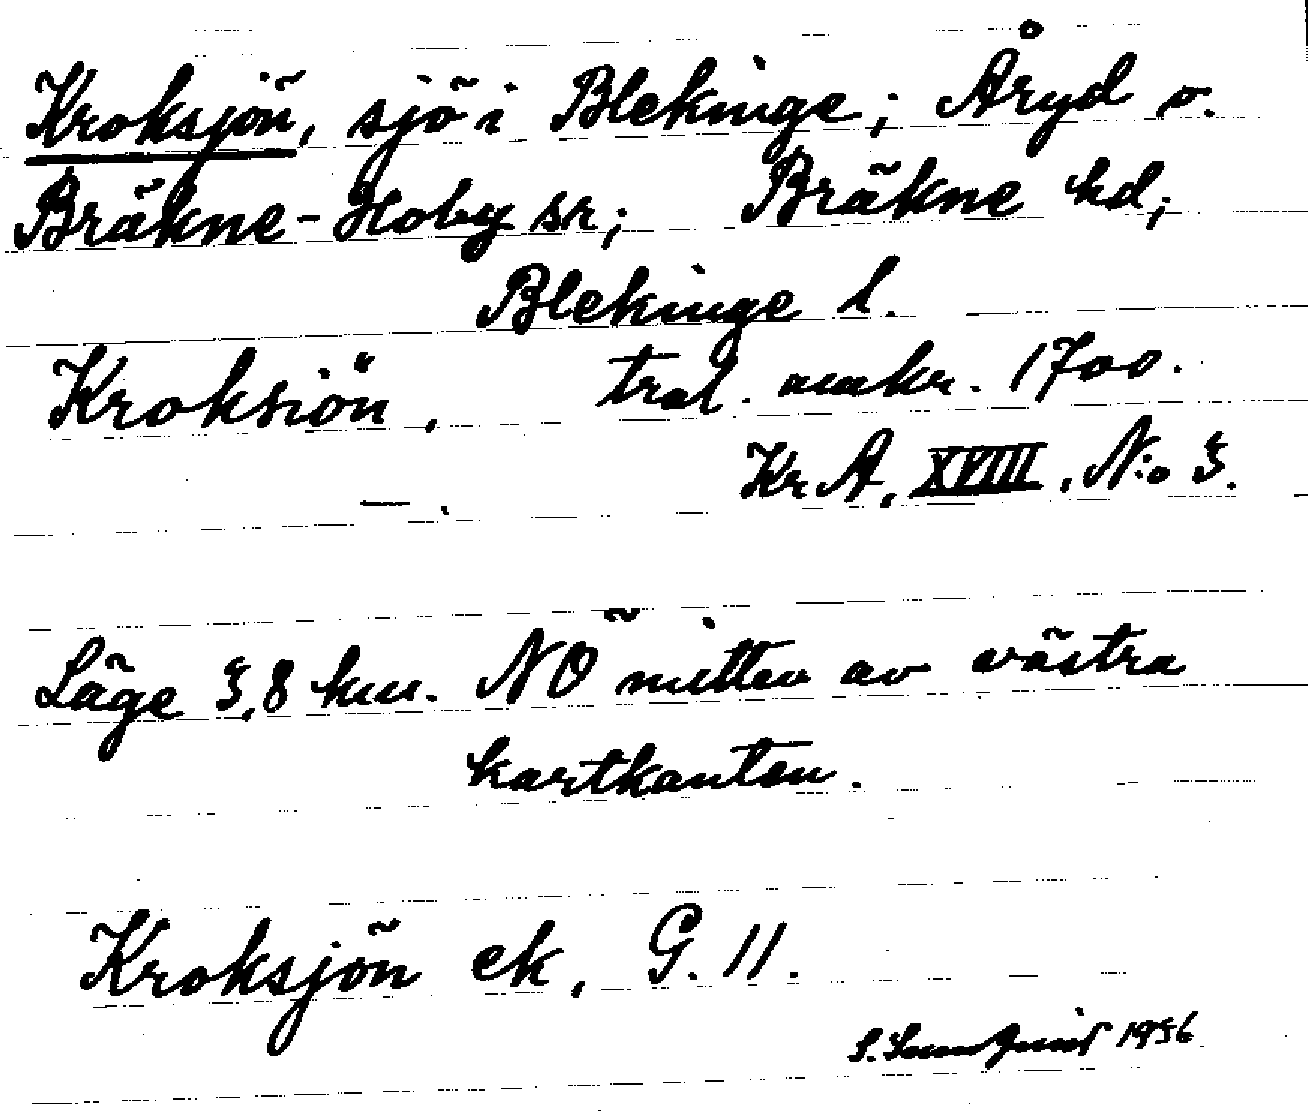 Kroksjön, sjö i Blekinge; Åryd o.
Bräkne-Hoby sr; Bräkne hd;
Blekinge l.
Kroksiön, trol. omkr. 1700.
KrA, XVIII, N:o 3.
Läge 3,8 km. NO mitten av västra
kartkanten.
Kroksjön ek, G. 11.
S. 1956